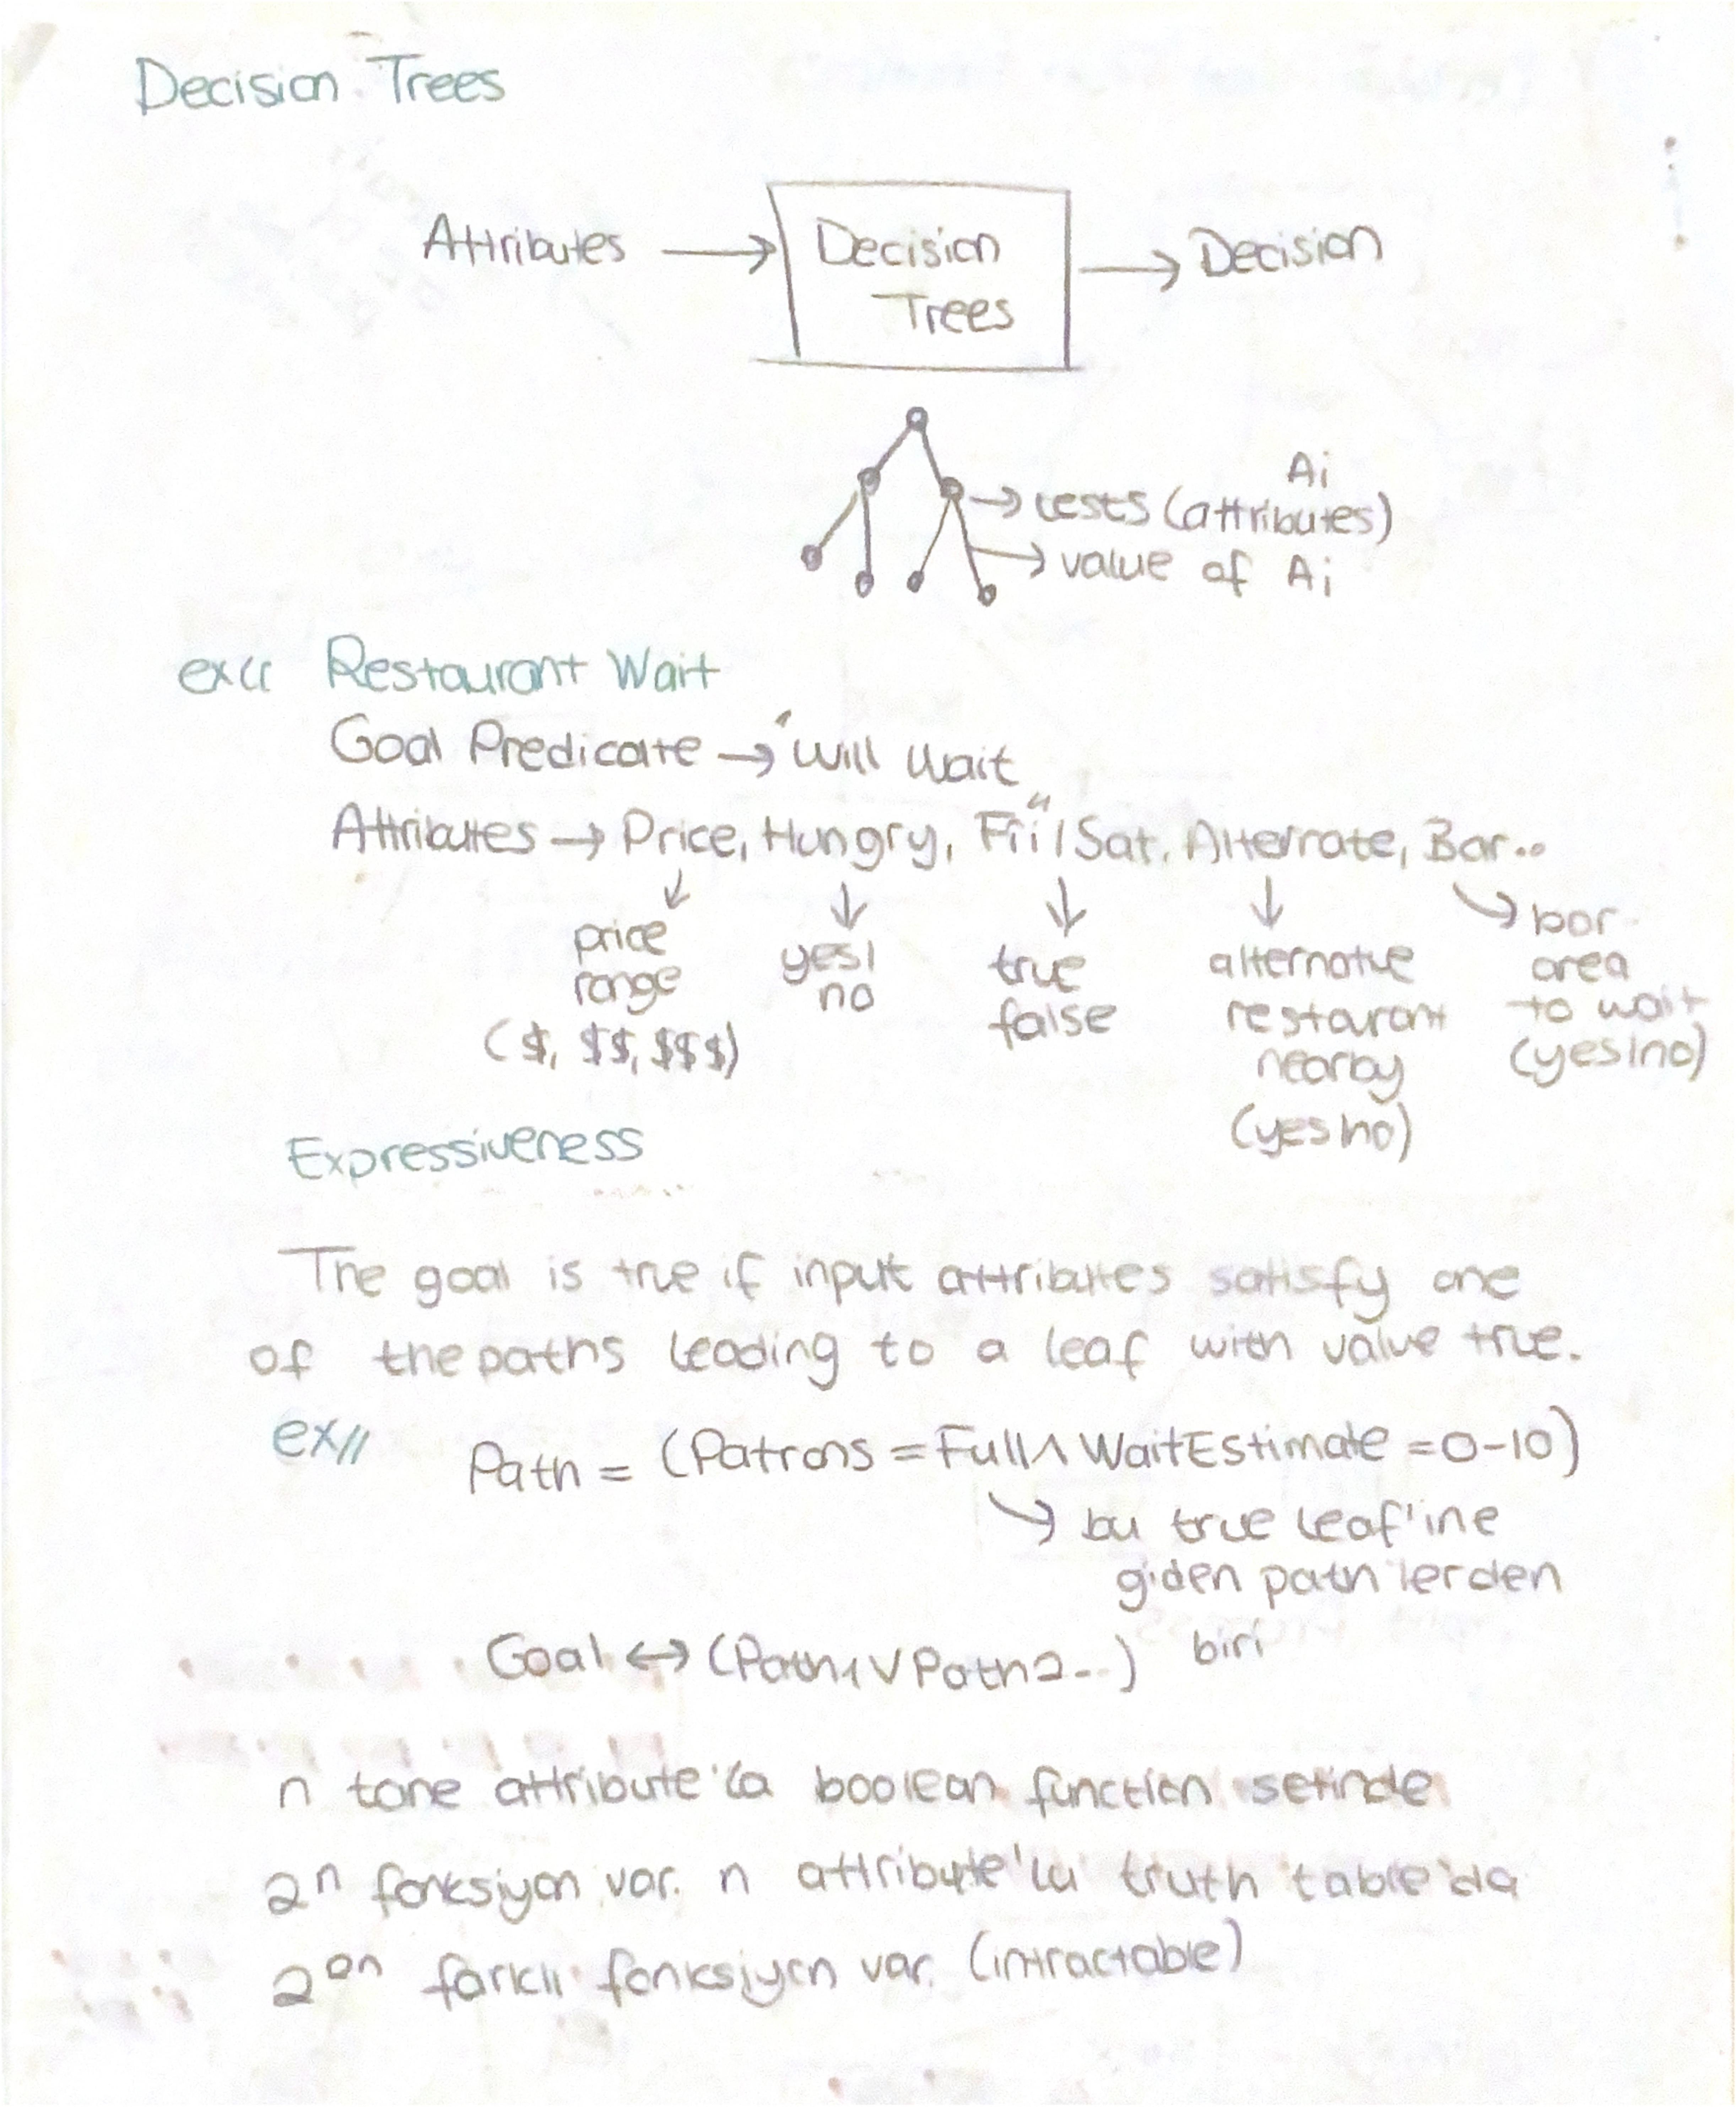 Decision Trees
Attributes → Decision Trees → Decision
Ai
→ tests (attributes)
→ value of Ai
ex// Restaurant Wait
Goal Predicate → "Will Wait"
Attributes → Price, Hungry, Fri/Sat, Alternate, Bar..
price range ($, $$, $$$)
yes/no
true false
alternative restaurant nearby (yes/no)
bar area to wait (yes/no)
Expressiveness
The goal is true if input attributes satisfy one
of the paths leading to a leaf with value true.
ex// Path = (Patrons = Full ∧ WaitEstimate = 0-10)
→ bu true leaf'ine
giden path'lerden
biri
Goal ↔ (Path1 ∨ Path2..)
n tane attribute'la boolean function setinde
2ⁿ fonksiyon var. n attribute'lu truth table'da
farklı fonksiyon var. (intractable)